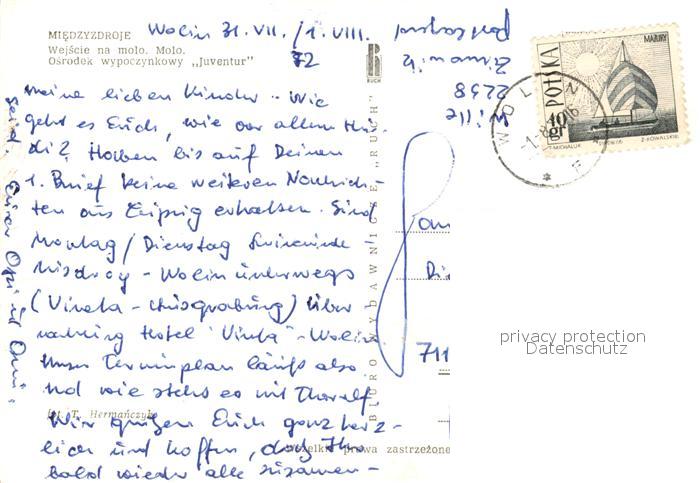 MIĘDZYZDROJE
Wejście na molo. Molo.
Ośrodek wypoczynkowy „Juventur"
Wolin 31. VII. / 1. VIII.
72
meine lieben Kinder - Wie
geht es Euch, wie vor allem
? Haben bis auf Deinen
1. Brief keine weiteren Nachrich-
ten aus Leipzig erhalten. Sind
Montag / Dienstag Swinemünde -
Misdroy - Wolin unterwegs
(Vineta - Ausgrabung) über
Hotel "Vineta" - Wolin
Unser Terminplan läuft also.
Und wie stehts es mit
Wir grüßen Euch ganz herz-
lich und hoffen, daß Ihr
bald wieder alle zusammen -
seid. Eure Opi und Omi.
fot. T. Hermańczyk
BIURO WYDAWNICZE „RUCH"
RUCH
Wszelkie prawa zastrzeżone
2238
711
POLSKA
MAZURY
40 gr
T-MICHALUK
Z-KOWALSKI
WOLIN
privacy protection
Datenschutz